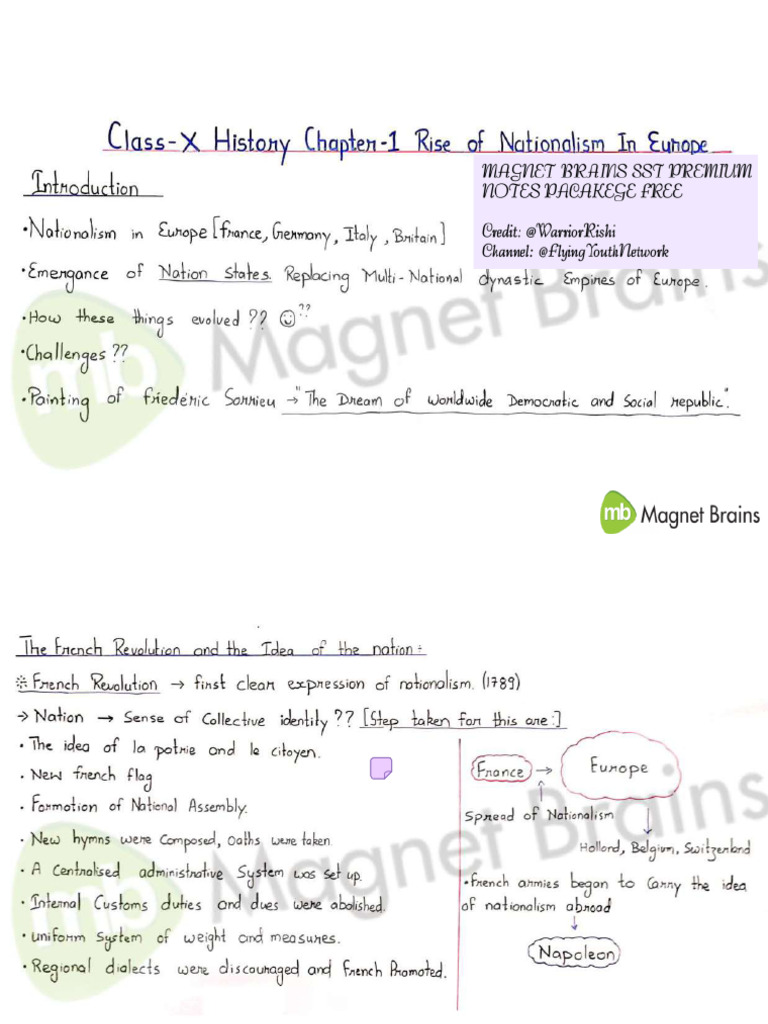 Class-X History Chapter-1 Rise of Nationalism In Europe
MAGNET BRAINS SST PREMIUM
NOTES PACAKEGE FREE
Credit: @WarriorRishi
Channel: @FlyingYouthNetwork
Introduction
•Nationalism in Europe [France, Germany, Italy, Britain]
•Emergance of Nation States. Replacing Multi-National dynastic Empires of Europe.
•How these things evolved?? ☺??
•Challenges??
•Painting of friedéric Sorrieu → "The Dream of worldwide Democratic and Social republic".
mb Magnet Brains
mb Magnet Brains
The French Revolution and the Idea of the nation:-
※ French Revolution → first clear expression of nationalism. (1789)
→ Nation → Sense of Collective identity?? [Step taken for this are:]
• The idea of la patrie and le citoyen.
• New french flag
• Formation of National Assembly.
• New hymns were Composed, Oaths were taken.
• A Centralised administrative System was set up.
• Internal Customs duties and dues were abolished.
• uniform System of weight and measures.
• Regional dialects were discouraged and French Promoted.
France → Europe
Spread of Nationalism
Holland, Belgium, Switzerland
•French armies began to Carry the idea
of nationalism abroad
Napoleon
mb Magnet Brains